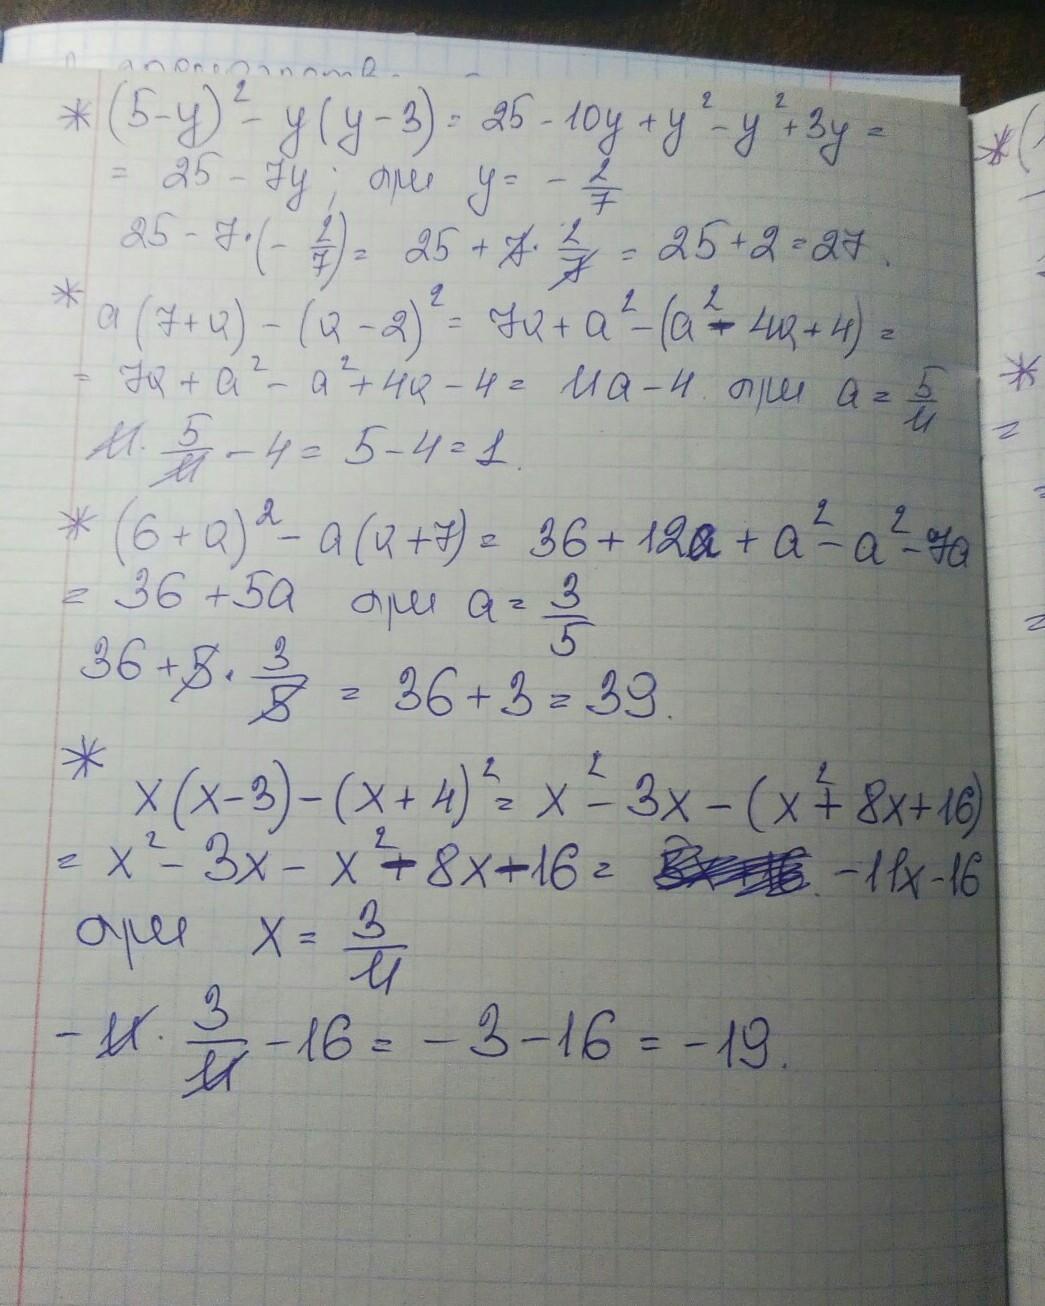 * (5-y)² - y(y-3) = 25 - 10y + y² - y² + 3y =
= 25 - 7y; при y = - 2/7
25 - 7·(- 2/7) = 25 + 7· 2/7 = 25 + 2 = 27.
* a(7+a) - (a-2)² = 7a + a² - (a² - 4a + 4) =
= 7a + a² - a² + 4a - 4 = 11a - 4. при a = 5/11
11· 5/11 - 4 = 5 - 4 = 1.
* (6+a)² - a(a+7) = 36 + 12a + a² - a² - 7a
= 36 + 5a при a = 3/5
36 + 5· 3/5 = 36 + 3 = 39.
* x(x-3) - (x+4)² = x² - 3x - (x² + 8x + 16)
= x² - 3x - x² - 8x - 16 = - 11x - 16
при x = 3/11
- 11· 3/11 - 16 = - 3 - 16 = - 19.